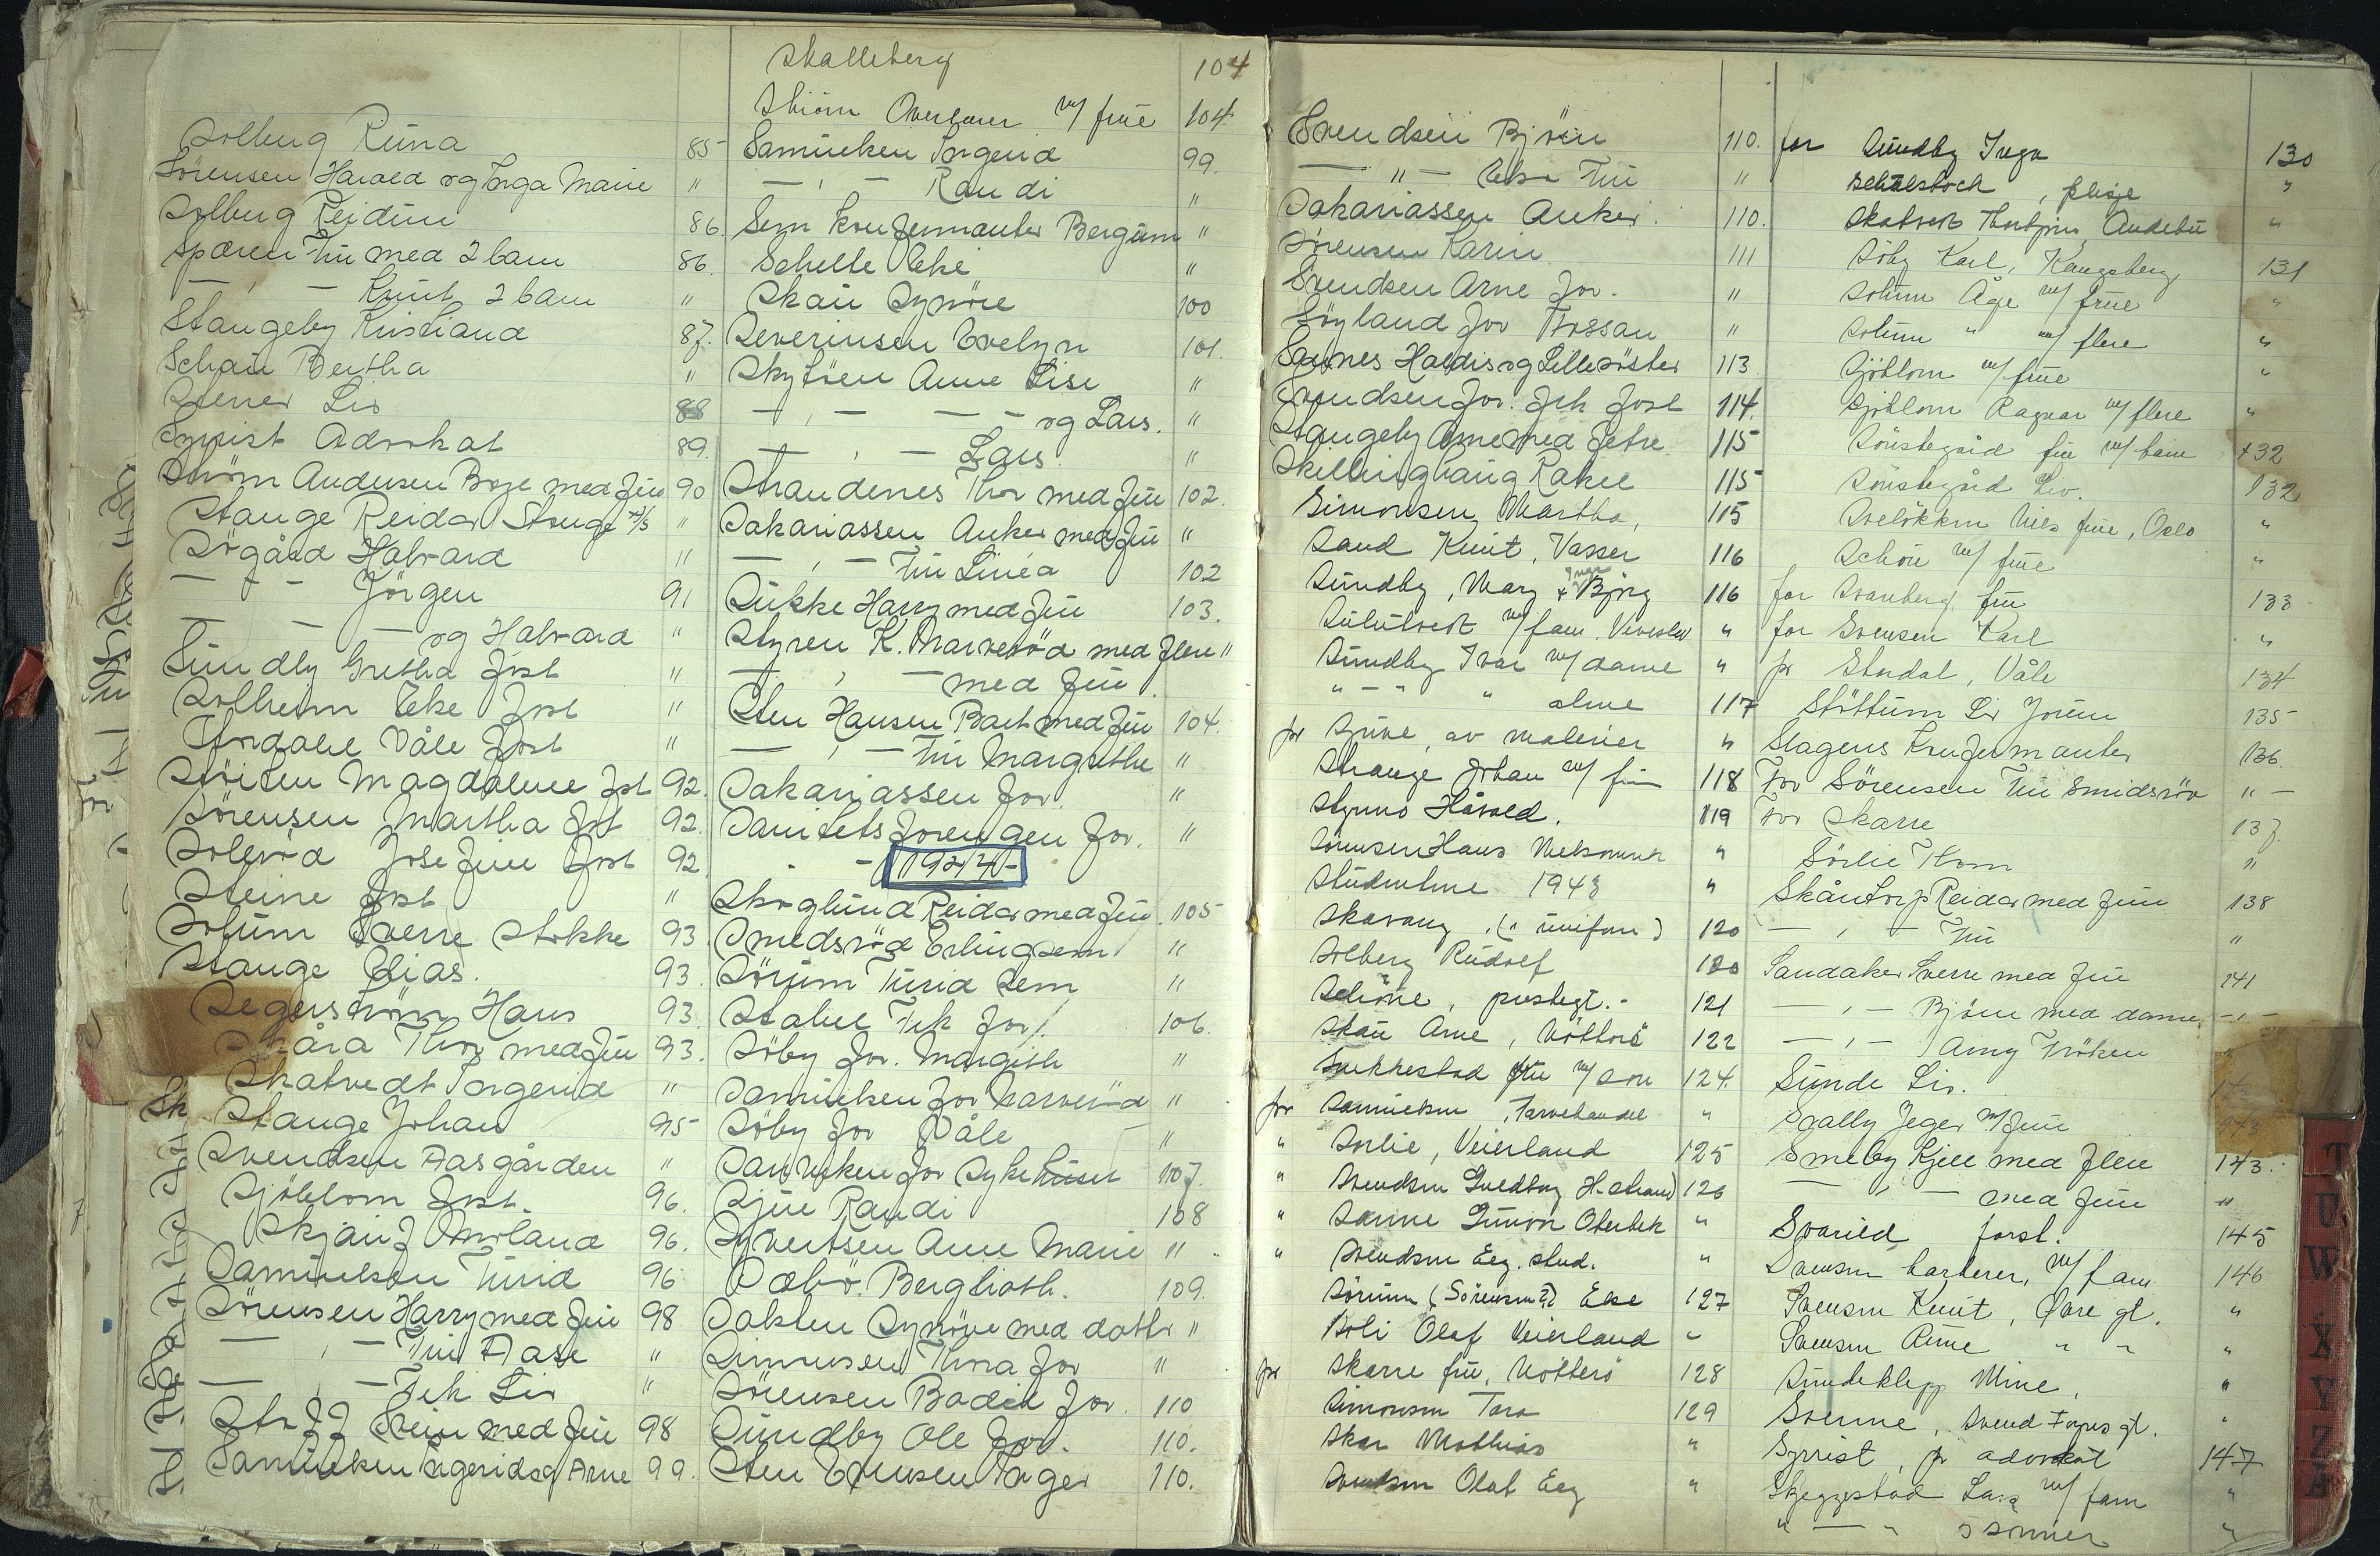 Solberg Runa 85
Sörensen Harald og Inga Marie "
Solberg Reidun 86.
Spæren Fru med 2 barn 86.
— , — Knut 2 barn "
Stangeby Kristiane 87.
Schau Bertha "
Stener Liv 88
Syrrist Advokat 89.
Ström Andersen Borge med Fru 90
Stange Reidar Stange A/S "
Sögård Halvard "
— , — Jörgen 91
— — — og Halvard "
Sundby Gretha Jost "
Solheim Eke Jost "
Stordahl Våle Jost "
Magdalene Jst 92.
Sörensen Martha Jst 92.
Solerød Josefine Jost 92.
Steine Jost "
Solum Sverre Stokke 93
Stange Elias. 93.
Segerström Hans 93.
Skåra Thor med Fru 93.
Skatvedt Ingerid "
Stange Johan 95
Svendsen Aasgården "
Sjöblom Jost. 96.
96.
Samuelsen Turid 96
Sörensen Harry med Fru 98
— , — Fru Aase "
— , — Frk Liv "
Svein med Fru 98
Samuelsen Ingerid og Arne 99.
Skalleberg 104
Overlærer m/ frue 104.
Samuelsen Ingerid 99.
— , — Randi "
Sem Konfirmanter Bergum "
Schelle Eke "
Skau Synöve 100
Severinsen Evelyn 101.
Anne Lise "
— , — — og Lars. "
— , — Lars. "
Strandenes Thor med Fru 102.
Sakariassen Anker med Fru "
— , — Fru Linea 102
Sukke Harry med Fru 103.
Styren K. Marvesöd med Flere "
— , — med Fru .
Sten Hansen Bart med Fru 104.
— , — Fru Margrethe "
Sakariassen Jor. "
Sanitetsforengen Jor. "
- 1944 -
Skoglund Reidar med Fru 105
Smedsröd Erling Sem "
Sörum Turid Sem "
Stabel Frk Jor. 106.
Söby Jor. Margith "
Samuelsen Jor "
Söby Jor Våle "
Jor Sykehuset 107.
Sjue Randi 108
Syvertsen Anne Marie "
Sæbö. Berglioth. 109.
Synöve med datter "
Simonsen Thora Jor "
Sörensen Bodil Jor. 110
Sundby Ole Jor. 110.
Sten Evensen Inger 110.
Svendsen Björn 110.
— " — Elsa Fru "
Sakariassen Anker. 110.
Sörensen Karin 111
Svendsen Arne Jor. "
Söyland Jor "
Haldis og Lillesöster 113.
Svendsen Jor. Frk Jost 114.
Stangeby Arne med Fetre 115
Skillinghaug Rakel 115
Simonsen, Martha, 115
Sand Knut, Vasser 116
Sundby, Mary & Inger Björg 116
m/ fam. "
Sundby Ivar m/ dame "
" - " " alene 117
for Sjuve, av malerier "
Stange Johan m/ fru 118
Stymo Håvald. 119
Sörensen Hans "
Studentene 1943 "
Skavang, (i uniform) 120
Solberg Rudolf 120
Schöne, prestegt. - 121
Skau Arne, Nötterö 122
Fru m/ sön 124.
for Samuelsen, Farvehandel "
" Sörlie, Veierland 125
" Svendsen H-strand 126
" Sanne Simon "
" Svendsen Eeg. stud. "
Sörum (Sörensen?) Else 127
Soli Olaf Veierland "
for Skarre fru, Nötterö 128
Simonsen Tora 129
Skar Mathias "
Svendsen Olaf Eeg "
for Sundby Inga 130
, pleie "
Skatvedt Thorbjörn, Andebu "
Söby Karl, Kongsberg 131
Solum Åge m/ frue "
Solum " m/ flere "
Sjöblom m/ frue "
Sjöblom Ragnar m/ flere "
Sönstegård fru m/ barn 132
Sönstegård Liv. 132
Nils frue, Oslo "
Schou m/ frue "
for Svanberg fru 133
for Svensen Karl "
for Stordal, Våle 134
Stöttum Liv Jorun 135
Slagens Konfirmanter 136.
For Sörensen Fru Smidsröd " —
For Skarre 137.
Sörlie Thom "
Skåntorp Reidar med Fru 138
— , — Fru "
Sandaker Sverre med Fru 141
— , — Björn med dame — , —
— , — Amy Fröken
Sunde Liv.
Sally Jeger m/ Fru 143
Smeby Kjell med Flere 143.
— " — med Fru "
Svarild forst. 145
Svensen barberer, m/ fam 146
Svensen Knut, Övre gt. "
Svensen Arne " " "
Sundeklepp Mine, "
Svenne, Svend Foyns gt. "
Syrrist, fr advokat 147
Skjeggestad Lars m/ fam "
" — " 3 sönner "
T
U
W
X
Y
Z